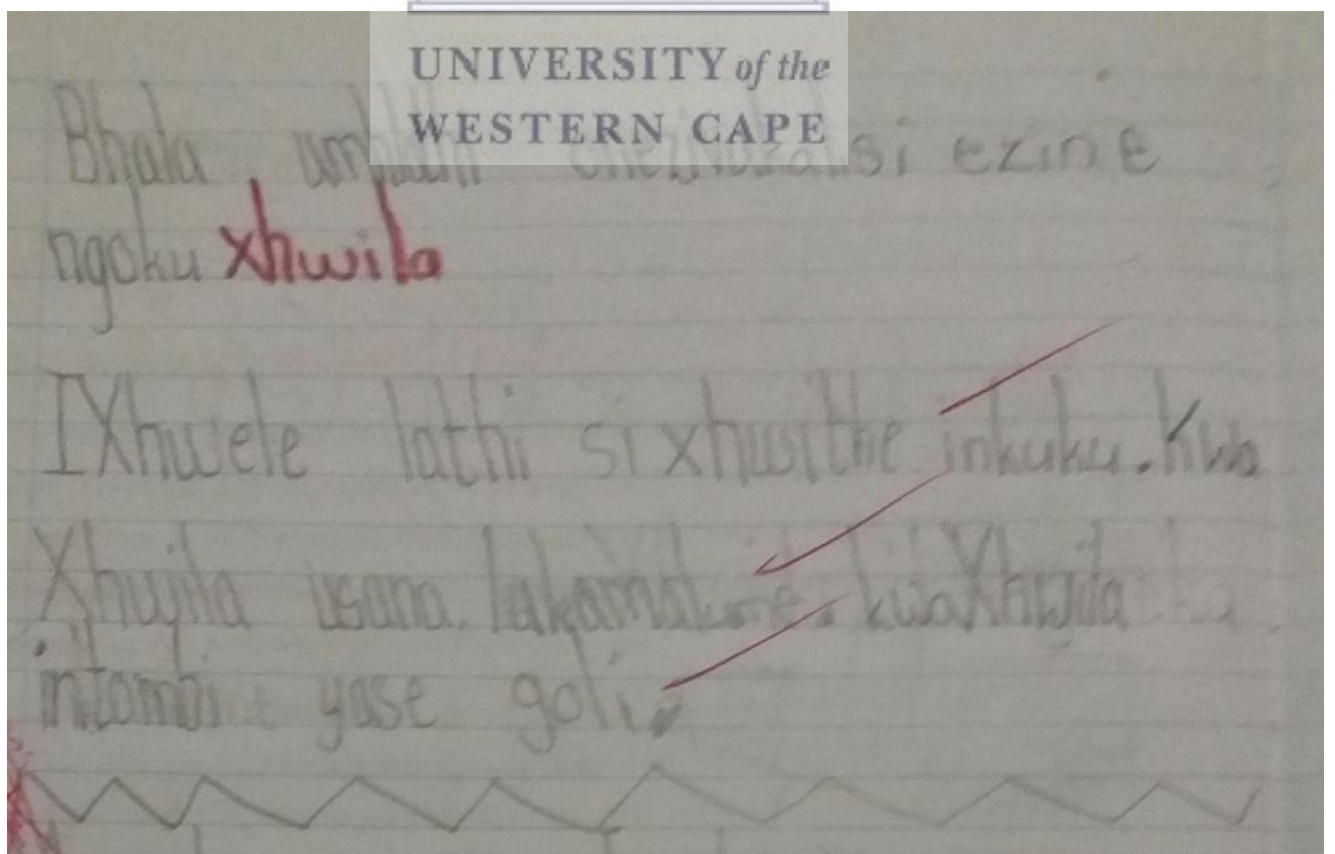 UNIVERSITY of the
WESTERN CAPE
Bhala ezine
ngoku xhwila
IXhwele lathi sixhwithe inkuku. Kwa
Xhwila usana lakamalume. kwaXhwila
intombi yase goli.